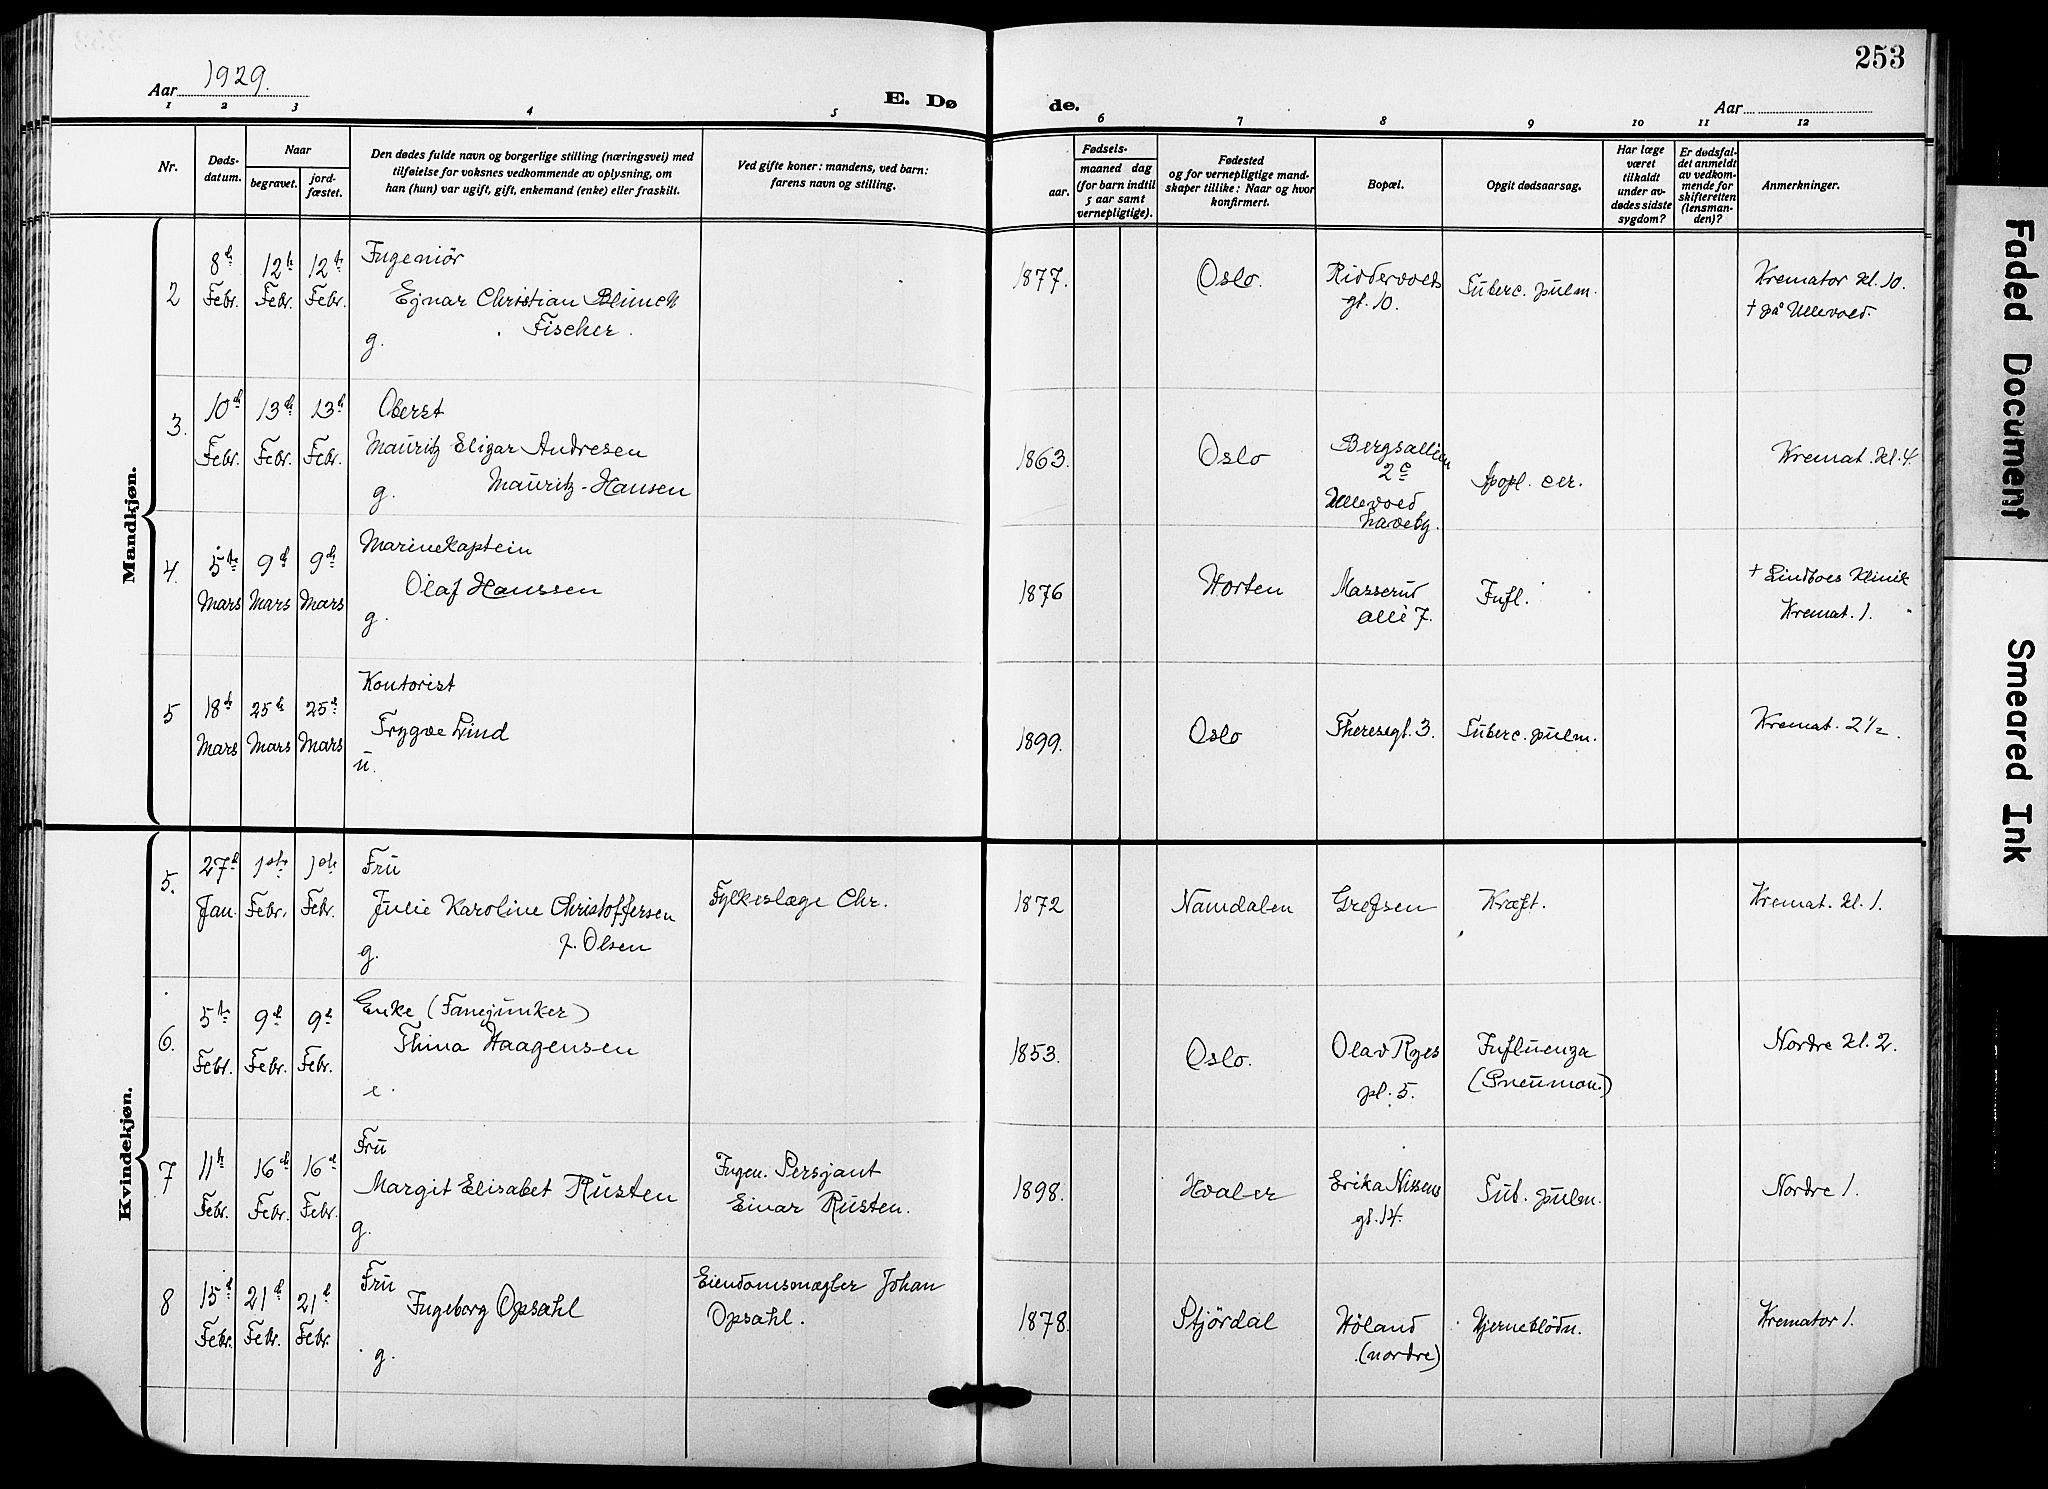 253
Aar 1929.
E. Dø de.
Aar
1 2 3 4 5 6 7 8 9 10 11 12
Nr.
Døds-
datum.
Naar
begravet.
jord-
fæstet.
Den dødes fulde navn og borgerlige stilling (næringsvei) med
tilføielse for voksnes vedkommende av oplysning, om
han (hun) var ugift, gift, enkemand (enke) eller fraskilt.
Ved gifte koner: mandens, ved barn:
farens navn og stilling.
Fødsels-
aar.
maaned dag
(for barn indtil
5 aar samt
vernepligtige).
Fødested
og for vernepligtige mand-
skaper tillike: Naar og hvor
konfirmert.
Bopæl.
Opgit dødsaarsag.
Har læge
været
tilkaldt
under av-
dødes sidste
sygdom?
Er dødsfal-
det anmeldt
av vedkom-
mende for
skifteretten
(lensman-
den)?
Anmerkninger.
Mandkjøn.
2
8de Febr.
12te Febr.
12te Febr.
Ingeniør
Ejnar Christian Blumch
Fischer.
g.
1877.
Oslo.
Riddervolds
gt. 10.
Tuberc. pulm.
Kremator kl. 10.
† på Ullevold.
3.
10de Febr.
13de Febr.
13de Febr.
Oberst
Mauritz Elizar Andresen
g. Mauritz-Hansen
1863.
Oslo
Bergsallien
2c
Ullevold
haveby.
Apopl. cer.
Kremat. kl. 4.
4.
5te Mars
9de Mars
9de Mars
Marinekaptein
Olaf Hanssen
g.
1876
Horten
Masserud
alle 7.
Infl.
† Lindboes Klinik
Kremat. 1.
5
18de Mars
25de Mars
25de Mars
Kontorist
Trygve Lind
u.
1899.
Oslo
Theresegt. 3.
Tuberc. pulm.
Kremat. 2½.
Kvindekjøn.
5.
27de Jan.
1ste Febr.
1ste Febr.
Fru
Julie Karoline Christoffersen
g. f. Olsen
Fylkeslæge Chr.
1872
Namdalen
Grefsen
Kræft.
Kremat. kl. 1.
6.
5te Febr.
9de Febr.
9de Febr.
Enke (Fanejunker)
Thina Haagensen
e.
1853.
Oslo.
Olav Ryes
pl. 5.
Influenza
(Pneumon.)
Nordre kl. 2.
7
11te Febr.
16de Febr.
16de Febr.
Fru
Margit Elisabet Rusten
g.
Ingen. Sersjant
Einar Rusten.
1898.
Hvaler
Erika Nissens
gt. 14.
Tub. pulm.
Nordre 1.
8
15de Febr.
21de Febr.
21de Febr.
Fru
Ingeborg Opsahl
g.
Eiendomsmægler Johan
Opsahl.
1878.
Stjördal
Høland
(nordre)
Hjerneblödn.
Kremator 1.
Faded Document
Smeared Ink